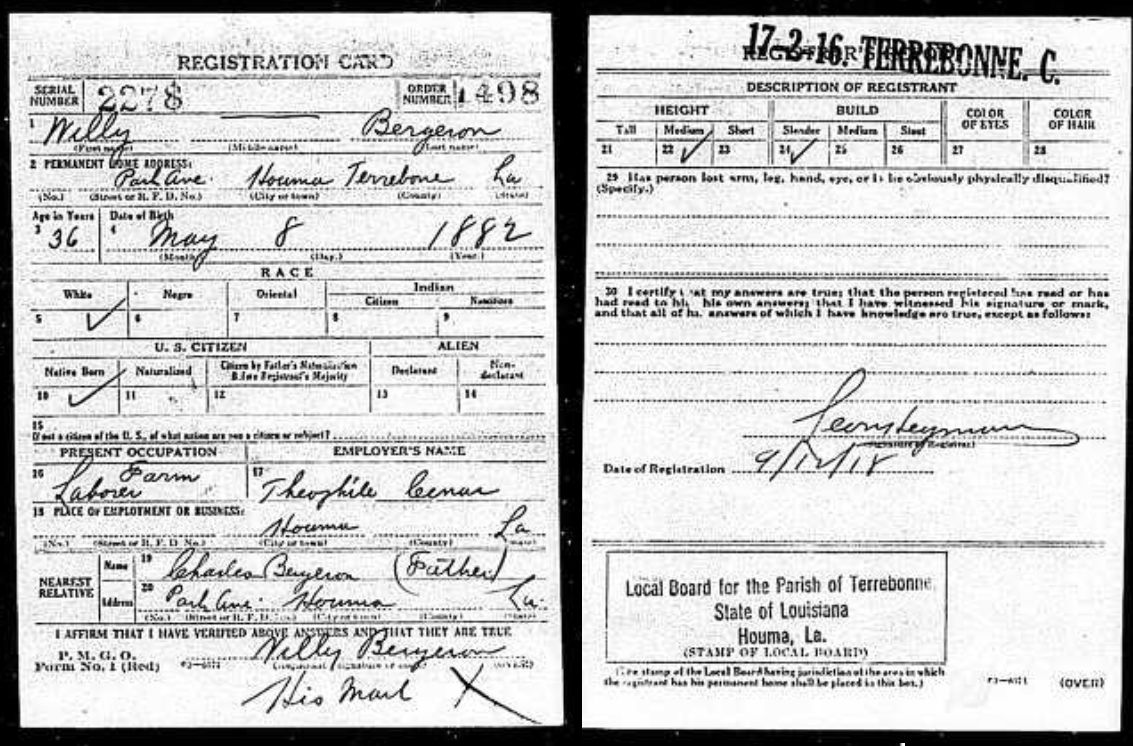 REGISTRATION CARD
SERIAL NUMBER 2278 ORDER NUMBER 1498
1 Willy Bergeron
(First name) (Middle name) (Last name)
2 PERMANENT HOME ADDRESS:
Park Ave. Houma Terrebone La
(No.) (Street or R. F. D. No.) (City or town) (County) (State)
Age in Years Date of Birth
3 36 4 May 8 1882
(Month.) (Day.) (Year.)
RACE
White Negro Oriental Indian
Citizen Noncitizen
5 ✓ 6 7 8 9
U. S. CITIZEN ALIEN
Native Born Naturalized Citizen by Father's Naturalization Before Registrant's Majority Declarant Non-declarant
10 ✓ 11 12 13 14
15
If not a citizen of the U. S., of what nation are you a citizen or subject?
PRESENT OCCUPATION EMPLOYER'S NAME
16 Farm Laborer 17 Theophile
18 PLACE OF EMPLOYMENT OR BUSINESS:
Houma La
(No.) (Street or R. F. D. No.) (City or town) (County) (State)
NEAREST RELATIVE Name 19 Charles Bergeron (Father)
Address 20 Park Ave. Houma La.
(No.) (Street or R. F. D. No.) (City or town) (County) (State)
I AFFIRM THAT I HAVE VERIFIED ABOVE ANSWERS AND THAT THEY ARE TRUE
P. M. G. O.
Form No. 1 (Red) Willy Bergeron
(Registrant's signature or mark) (OVER)
His Mark X
17-2-16. TERREBONNE. C.
REGISTRAR'S
DESCRIPTION OF REGISTRANT
HEIGHT BUILD COLOR OF EYES COLOR OF HAIR
Tall Medium Short Slender Medium Stout
21 22 ✓ 23 24 ✓ 25 26 27 28
29 Has person lost arm, leg, hand, eye, or is he obviously physically disqualified?
(Specify.)
30 I certify that my answers are true; that the person registered has read or has
had read to him his own answers; that I have witnessed his signature or mark,
and that all of his answers of which I have knowledge are true, except as follows:
(Signature of Registrar)
Date of Registration 9/12/18
Local Board for the Parish of Terrebonne,
State of Louisiana
Houma, La.
(STAMP OF LOCAL BOARD)
(The stamp of the Local Board having jurisdiction of the area in which
the registrant has his permanent home shall be placed in this box.)
(OVER)